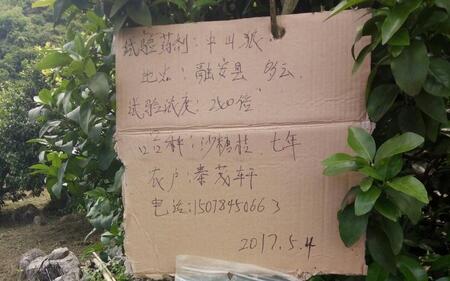 试验药剂：中山狠
地点：融安县
试验浓度：2500倍
品种：沙糖桔 七年
农户：秦茂轩
电话：15078450663
2017.5.4